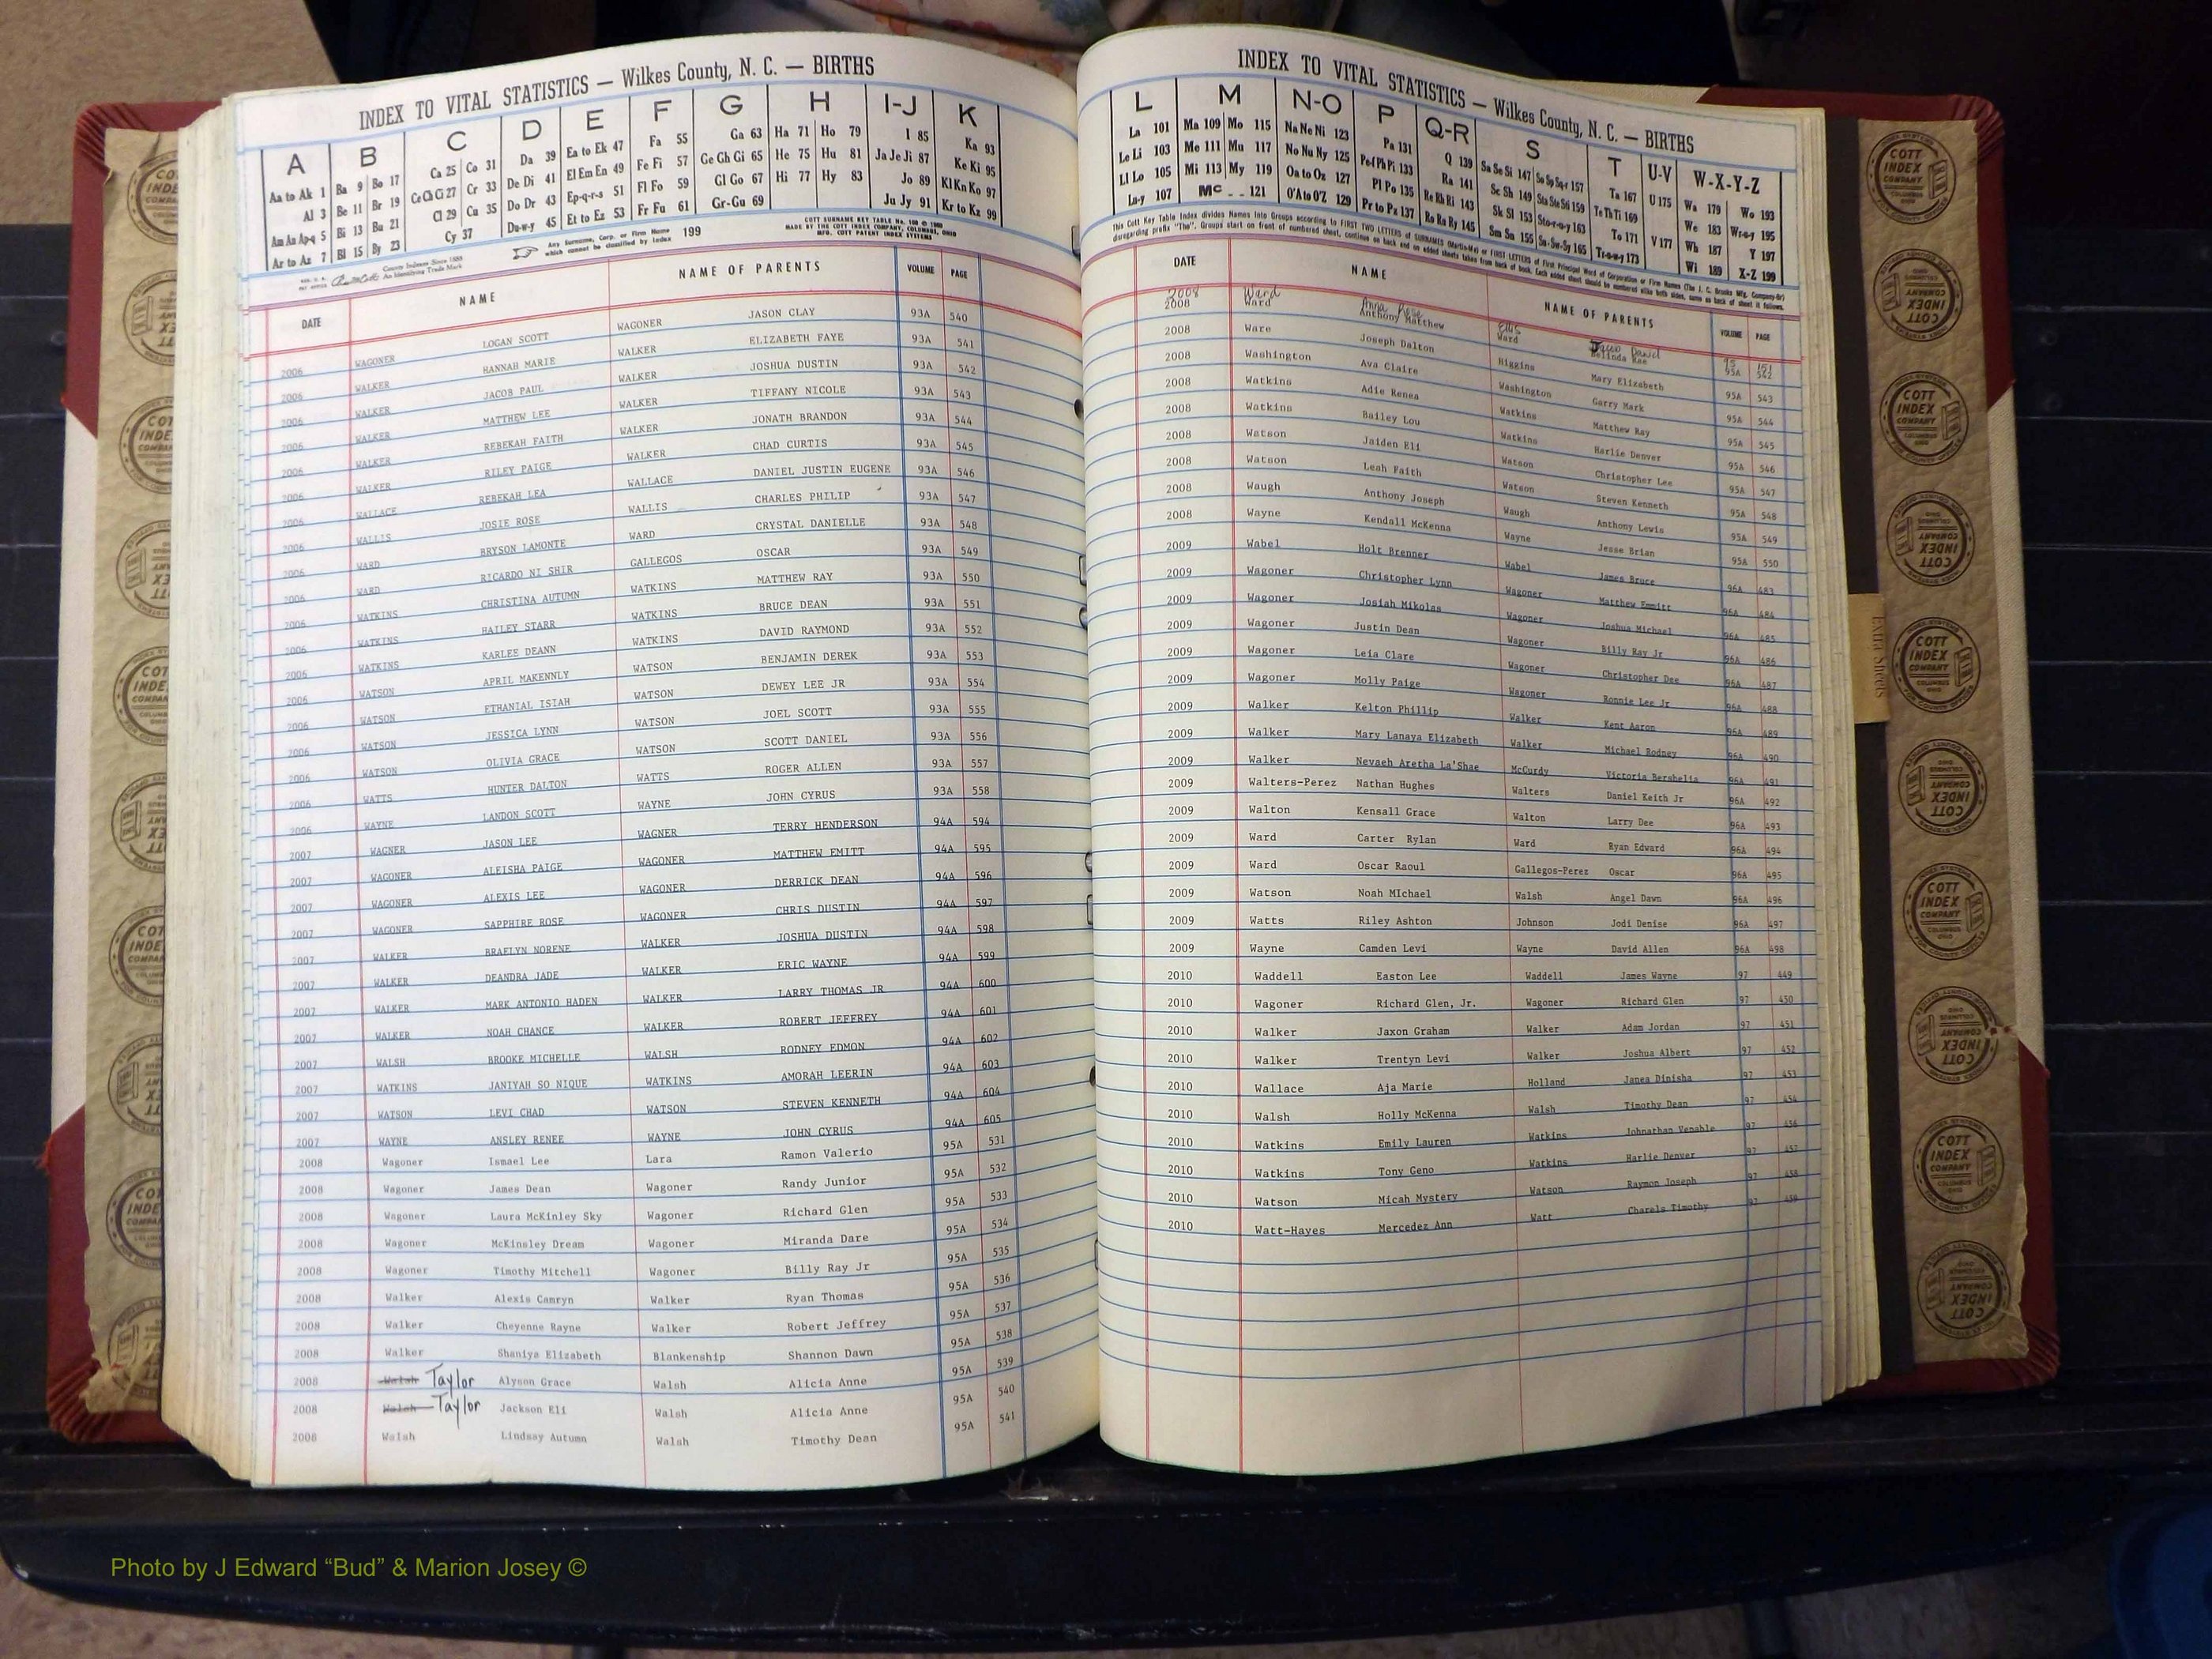 INDEX TO VITAL STATISTICS — Wilkes County, N. C. — BIRTHS
A B C D E F G H I-J K
Aa to Ak 1 Ba 9 Bo 17 Ca 25 Co 31 Da 39 Ea to Ek 47 Fa 55 Ga 63 Ha 71 Ho 79 I 85 Ka 93
Al 3 Be 11 Br 19 Ce Ch Ci 27 Cr 33 De Di 41 El Em En 49 Fe Fi 57 Ge Gh Gi 65 He 75 Hu 81 Ja Je Ji 87 Ke Ki 95
Am An Ap-q 5 Bi 13 Bu 21 Cl 29 Cu 35 Do Dr 43 Ep-q-r-s 51 Fl Fo 59 Gl Go 67 Hi 77 Hy 83 Jo 89 Kl Kn Ko 97
Ar to Az 7 Bl 15 By 23 Cy 37 Du-w-y 45 Et to Ez 53 Fr Fu 61 Gr-Gu 69 Ju Jy 91 Kr to Kz 99
County Indexes Since 1888
An Identifying Trade Mark
Any Surname, Corp. or Firm Name which cannot be classified by Index 199
MADE BY THE COTT INDEX COMPANY, COLUMBUS, OHIO
DATE NAME NAME OF PARENTS VOLUME PAGE
2006 WAGONER LOGAN SCOTT WAGONER JASON CLAY 93A 540
2006 WALKER HANNAH MARIE WALKER ELIZABETH FAYE 93A 541
2006 WALKER JACOB PAUL WALKER JOSHUA DUSTIN 93A 542
2006 WALKER MATTHEW LEE WALKER TIFFANY NICOLE 93A 543
2006 WALKER REBEKAH FAITH WALKER JONATH BRANDON 93A 544
2006 WALKER RILEY PAIGE WALKER CHAD CURTIS 93A 545
2006 WALLACE REBEKAH LEA WALLACE DANIEL JUSTIN EUGENE 93A 546
2006 WALLIS JOSIE ROSE WALLIS CHARLES PHILIP 93A 547
2006 WARD BRYSON LAMONTE WARD CRYSTAL DANIELLE 93A 548
2006 WARD RICARDO NI SHIR GALLEGOS OSCAR 93A 549
2006 WATKINS CHRISTINA AUTUMN WATKINS MATTHEW RAY 93A 550
2006 WATKINS HAILEY STARR WATKINS BRUCE DEAN 93A 551
2006 WATKINS KARLEE DEANN WATKINS DAVID RAYMOND 93A 552
2006 WATSON APRIL MAKENNLY WATSON BENJAMIN DEREK 93A 553
2006 WATSON ETHANIAL ISIAH WATSON DEWEY LEE JR 93A 554
2006 WATSON JESSICA LYNN WATSON JOEL SCOTT 93A 555
2006 WATSON OLIVIA GRACE WATSON SCOTT DANIEL 93A 556
2006 WATTS HUNTER DALTON WATTS ROGER ALLEN 93A 557
2006 WAYNE LANDON SCOTT WAYNE JOHN CYRUS 93A 558
2007 WAGNER JASON LEE WAGNER TERRY HENDERSON 94A 594
2007 WAGONER ALEISHA PAIGE WAGONER MATTHEW EMITT 94A 595
2007 WAGONER ALEXIS LEE WAGONER DERRICK DEAN 94A 596
2007 WAGONER SAPPHIRE ROSE WAGONER CHRIS DUSTIN 94A 597
2007 WALKER BRAELYN NORENE WALKER JOSHUA DUSTIN 94A 598
2007 WALKER DEANDRA JADE WALKER ERIC WAYNE 94A 599
2007 WALKER MARK ANTONIO HADEN WALKER LARRY THOMAS JR 94A 600
2007 WALKER NOAH CHANCE WALKER ROBERT JEFFREY 94A 601
2007 WALSH BROOKE MICHELLE WALSH RODNEY EDMON 94A 602
2007 WATKINS JANIYAH SO NIQUE WATKINS AMORAH LEERIN 94A 603
2007 WATSON LEVI CHAD WATSON STEVEN KENNETH 94A 604
2007 WAYNE ANSLEY RENEE WAYNE JOHN CYRUS 94A 605
2008 Wagoner Ismael Lee Lara Ramon Valerio 95A 531
2008 Wagoner James Dean Wagoner Randy Junior 95A 532
2008 Wagoner Laura McKinley Sky Wagoner Richard Glen 95A 533
2008 Wagoner McKinsley Dream Wagoner Miranda Dare 95A 534
2008 Wagoner Timothy Mitchell Wagoner Billy Ray Jr 95A 535
2008 Walker Alexis Camryn Walker Ryan Thomas 95A 536
2008 Walker Cheyenne Rayne Walker Robert Jeffrey 95A 537
2008 Walker Shaniya Elizabeth Blankenship Shannon Dawn 95A 538
2008 Walsh Taylor Alyson Grace Walsh Alicia Anne 95A 539
2008 Walsh Taylor Jackson Eli Walsh Alicia Anne 95A 540
2008 Walsh Lindsay Autumn Walsh Timothy Dean 95A 541
INDEX TO VITAL STATISTICS — Wilkes County, N. C. — BIRTHS
L M N-O P Q-R S T U-V W-X-Y-Z
La 101 Ma 109 Mo 115 Na Ne Ni 123 Pa 131 Q 139 Sa Se Si 147 So Sp Sq-r 157 Ta 167 U 175 Wa 179 Wo 193
Le Li 103 Me 111 Mu 117 No Nu Ny 125 Pe-f Ph Pi 133 Ra 141 Sc Sh 149 Sta Ste Sti 159 Te Th Ti 169 V 177 We 183 Wr-o-y 195
Ll Lo 105 Mi 113 My 119 Oa to Oz 127 Pl Po 135 Re Rh Ri 143 Sk Sl 153 Sto-r-u-y 163 To 171 Wh 187 Y 197
Lu-y 107 Mc 121 O'A to O'Z 129 Pr to Pz 137 Ro Ru Ry 145 Sm Sn 155 Su-Sw-Sy 165 Tr-u-w-y 173 Wi 189 X-Z 199
DATE NAME NAME OF PARENTS VOLUME PAGE
2008 Ward Anna Rose Ellis Jacob David 95
2008 Ward Anthony Matthew Ward Belinda Rae 95A 542
2008 Ware Joseph Dalton Higgins Mary Elizabeth 95A 543
2008 Washington Ava Claire Washington Garry Mark 95A 544
2008 Watkins Adie Renea Watkins Matthew Ray 95A 545
2008 Watkins Bailey Lou Watkins Harlie Denver 95A 546
2008 Watson Jaiden Eli Watson Christopher Lee 95A 547
2008 Watson Leah Faith Watson Steven Kenneth 95A 548
2008 Waugh Anthony Joseph Waugh Anthony Lewis 95A 549
2008 Wayne Kendall McKenna Wayne Jesse Brian 95A 550
2009 Wabel Holt Brenner Wabel James Bruce 96A 483
2009 Wagoner Christopher Lynn Wagoner Matthew Emmitt 96A 484
2009 Wagoner Josiah Mikolas Wagoner Joshua Michael 96A 485
2009 Wagoner Justin Dean Wagoner Billy Ray Jr 96A 486
2009 Wagoner Leia Clare Wagoner Christopher Dee 96A 487
2009 Wagoner Molly Paige Wagoner Ronnie Lee Jr 96A 488
2009 Walker Kelton Phillip Walker Kent Aaron 96A 489
2009 Walker Mary Lanaya Elizabeth Walker Michael Rodney 96A 490
2009 Walker Nevaeh Aretha La'Shae McCurdy Victoria Bershelia 96A 491
2009 Walters-Perez Nathan Hughes Walters Daniel Keith Jr 96A 492
2009 Walton Kensall Grace Walton Larry Dee 96A 493
2009 Ward Carter Rylan Ward Ryan Edward 96A 494
2009 Ward Oscar Raoul Gallegos-Perez Oscar 96A 495
2009 Watson Noah MIchael Walsh Angel Dawn 96A 496
2009 Watts Riley Ashton Johnson Jodi Denise 96A 497
2009 Wayne Camden Levi Wayne David Allen 96A 498
2010 Waddell Easton Lee Waddell James Wayne 97 449
2010 Wagoner Richard Glen, Jr. Wagoner Richard Glen 97 450
2010 Walker Jaxon Graham Walker Adam Jordan 97 451
2010 Walker Trentyn Levi Walker Joshua Albert 97 452
2010 Wallace Aja Marie Holland Janea Dinisha 97 453
2010 Walsh Holly McKenna Walsh Timothy Dean 97 454
2010 Watkins Emily Lauren Watkins Johnathan Venable 97 456
2010 Watkins Tony Geno Watkins Harlie Denver 97 457
2010 Watson Micah Mystery Watson Raymon Joseph 97 458
2010 Watt-Hayes Mercedez Ann Watt Charels Timothy 97 459
Extra Sheets
COTT INDEX COMPANY COLUMBUS OHIO
Photo by J Edward “Bud” & Marion Josey ©